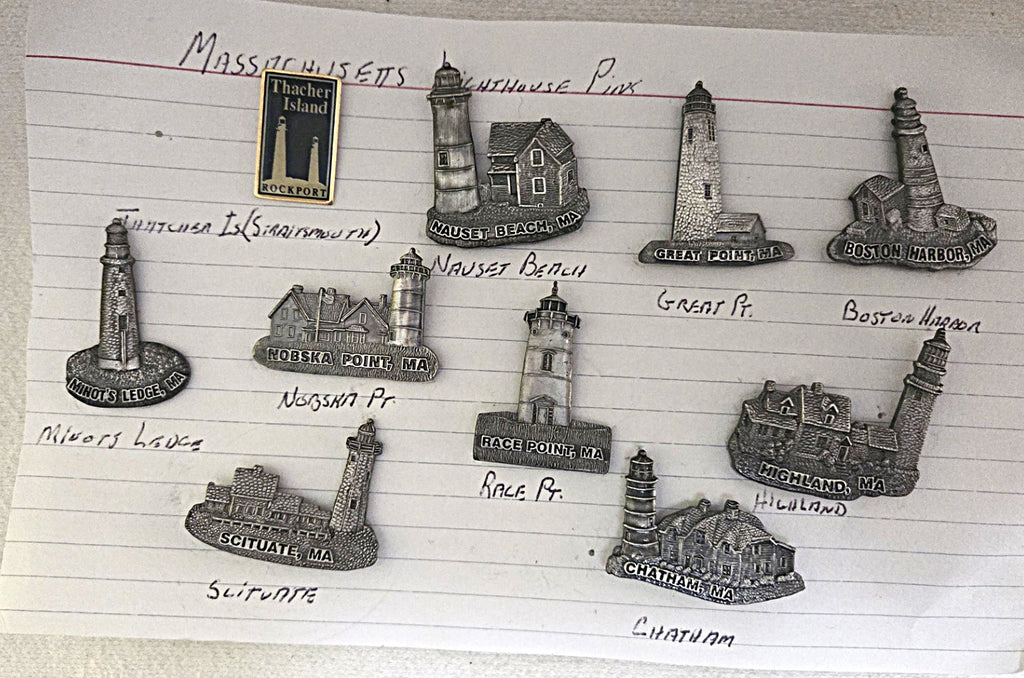 MASSACHUSETTS LIGHTHOUSE PINS
Thacher
Island
ROCKPORT
NAUSET BEACH, MA
GREAT POINT, MA
BOSTON HARBOR, MA
THATCHER IS (STRAITSMOUTH)
NAUSET BEACH
GREAT PT.
BOSTON HARBOR
MINOT'S LEDGE, MA
NOBSKA POINT, MA
RACE POINT, MA
HIGHLAND, MA
NOBSKA PT.
MINOTS LEDGE
RACE PT.
HIGHLAND
SCITUATE, MA
CHATHAM, MA
SCITUATE
CHATHAM